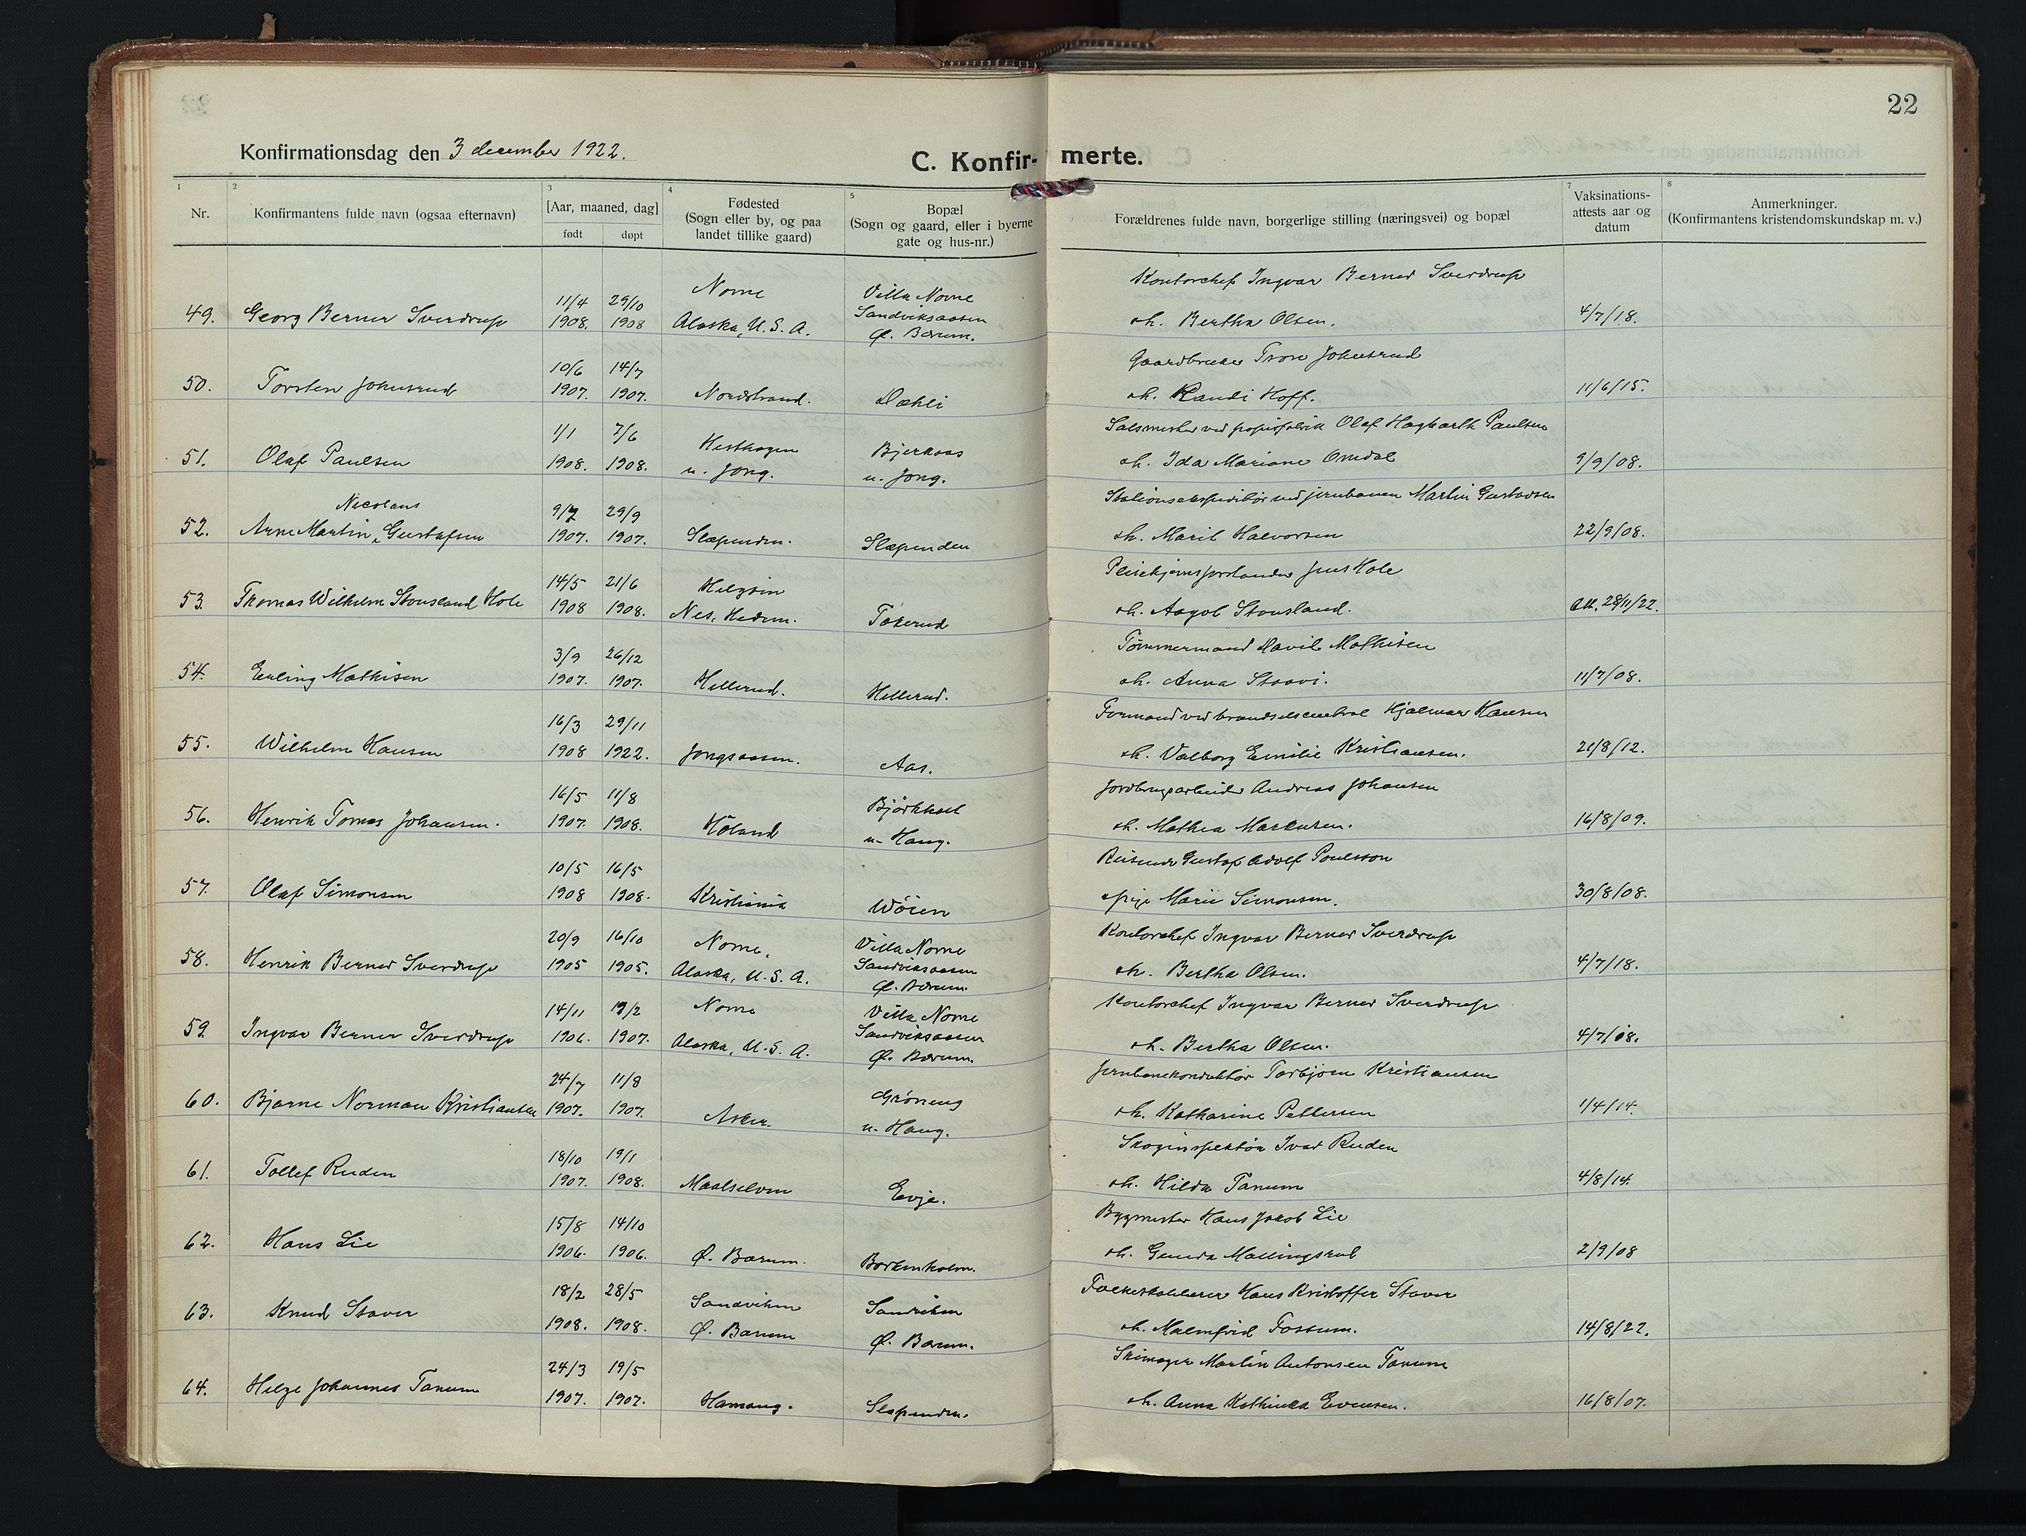 22
Konfirmationsdag den 3 december 1922.
C. Konfir- merte.
1 2 3 4 5 7 8
Nr.
Konfirmantens fulde navn (ogsaa efternavn)
[Aar, maaned, dag]
født døpt
Fødested
(Sogn eller by, og paa
landet tillike gaard)
Bopæl
(Sogn og gaard, eller i byerne
gate og hus-nr.)
Forældrenes fulde navn, borgerlige stilling (næringsvei) og bopæl
Vaksinations-
attests aar og
datum
Anmerkninger.
(Konfirmantens kristendomskundskap m. v.)
Nome Villa Nome Kontorchef Ingvar Berner Sverdrup
49. Georg Berner Sverdrup 11/4 1908. 29/10 1908 Alaska, U. S. A. Sandviksaasen Ø. Bærum. oh. Bertha Olsen. 4/7/18.
Gaardbruker Tron Johnsrud
50. Torsten Johnsrud 10/6 1907. 14/7 1907. Nordstrand. Dæhli oh. Randi Hoff. 11/6/15.
Hesthagen Bjerkaas Salsmester ved papirfabrik Olaf Hagbarth Paulsen
51. Olaf Paulsen 1/1 1908. 7/6 1908. u. Jong. u. Jong. oh. Ida Mariane Omdal 9/9/08.
Nicolaus Stationsekspeditør ved jernbanen Martin Gustavsen
52. Arne Martin Gustafsen 9/7 1907. 29/9 1907. Slæpenden. Slæpenden oh. Marit Halvorsen 22/9/08.
Helgøin Pleiehjemsforstander Jens Hole
53. Thomas Wilhelm Stousland Hole 14/5 1908 21/6 1908. Nes, Hedem. Tokerud oh. Aagot Stousland. att. 28/11/22.
Tømmermand David Mathisen
54. Erling Mathisen 3/9 1907. 26/12 1907. Hellerud. Hellerud. oh. Anna Staavi. 11/7/08.
Formand ved brændselscentral Hjalmar Hansen
55. Wilhelm Hansen 16/3 1908 29/11 1922. Jongsaasen. Aas. oh. Valborg Emilie Kristiansen. 21/8/12.
Bjørkholt Jordbrugsarbeider Andreas Johansen
56. Henrik Tomas Johansen. 16/5 1907. 11/8 1908. Høland u. Haug. oh. Mathea Markusen. 16/8/09.
Reisende Gustaf Adolf Poulsson
57. Olaf Simonsen 10/5 1908 16/5 1908. Kristiania Wøien pige Marie Simonsen. 30/8/08.
Nome, Villa Nome Kontorchef Ingvar Berner Sverdrup
58. Henrik Berner Sverdrup 20/9 1905 16/10 1905. Alaska, U. S. A. Sandviksaasen Ø. Bærum. oh. Bertha Olsen. 4/7/18.
Nome Villa Nome Kontorchef Ingvar Berner Sverdrup
59. Ingvar Berner Sverdrup 14/11 1906. 13/2 1907. Alaska, U. S. A. Sandviksaasen Ø. Bærum. oh. Bertha Olsen. 4/7/18.
Grøneng Jernbanekonduktør Torbjørn Kristiansen
60. Bjarne Norman Kristiansen 24/7 1907. 11/8 1907. Asker. u. Haug. oh. Katharine Pettersen 1/4/14.
Skoginspektør Ivar Ruden
61. Tollef Ruden 18/10 1907. 19/1 1908. Maalselven Evje. oh. Hilda Tanum 4/8/14.
Bygmester Hans Jakob Lie
62. Hans Lie 15/8 1906. 14/10 1906. Ø. Bærum. Borkenholm. oh. Gunda Mællingskul 2/9/08
Sandviken Sandviken Folkeskolelærer Hans Kristoffer Staver
63. Knud Staver 18/2 1908. 28/5 1908. Ø. Bærum Ø. Bærum. oh. Malmfrid Fossum. 14/8/22.
Skimager Martin Antonsen Tanum
64. Helge Johannes Tanum 24/3 1907. 19/5 1907. Hamang. Slæpenden. oh. Anna Kathinka Evensen. 16/8/07.